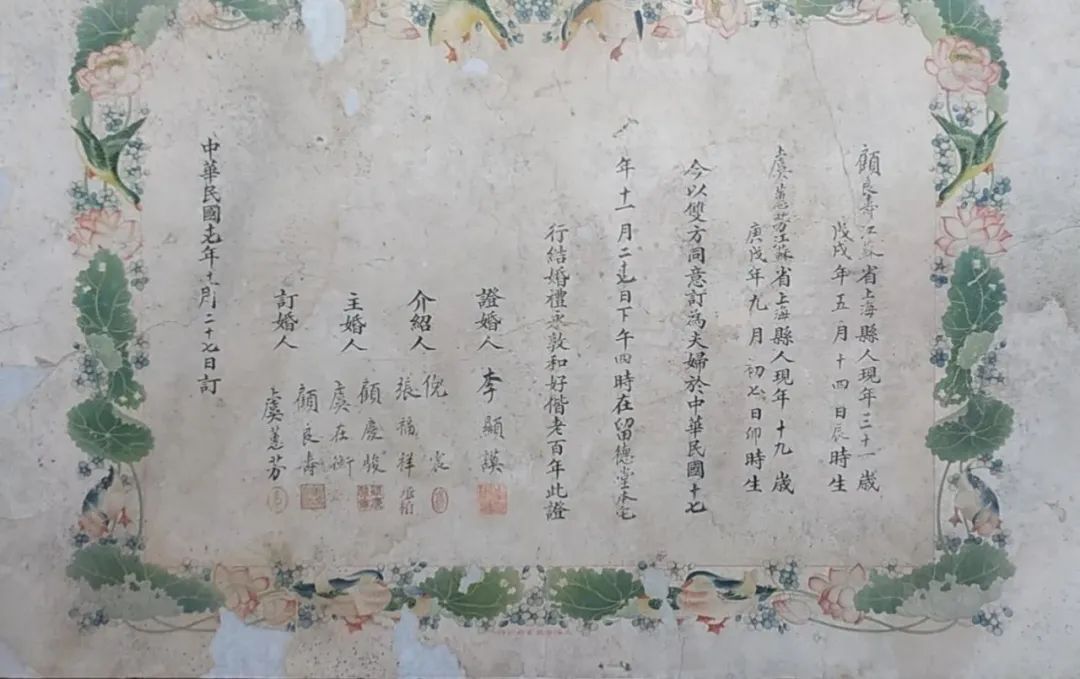 顧良壽江蘇省上海縣人現年三十一歲
戊戌年五月十四日辰時生
虞蕙芬江蘇省上海縣人現年十九歲
庚戌年九月初七日卯時生
今以雙方同意訂為夫婦於中華民國十七
年十一月二十七日下午四時在留德堂本宅
行結婚禮永敦和好偕老百年此證
證婚人 李顯謨
介紹人 倪 張福祥
主婚人 顧慶駿 虞在衡
訂婚人 顧良壽 虞蕙芬
中華民國十七年十一月二十七日訂